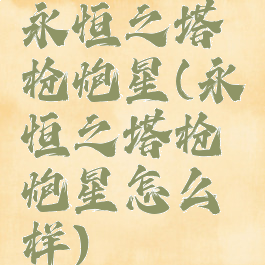 永恒之塔
枪炮星(永
恒之塔枪
炮星怎么
样)